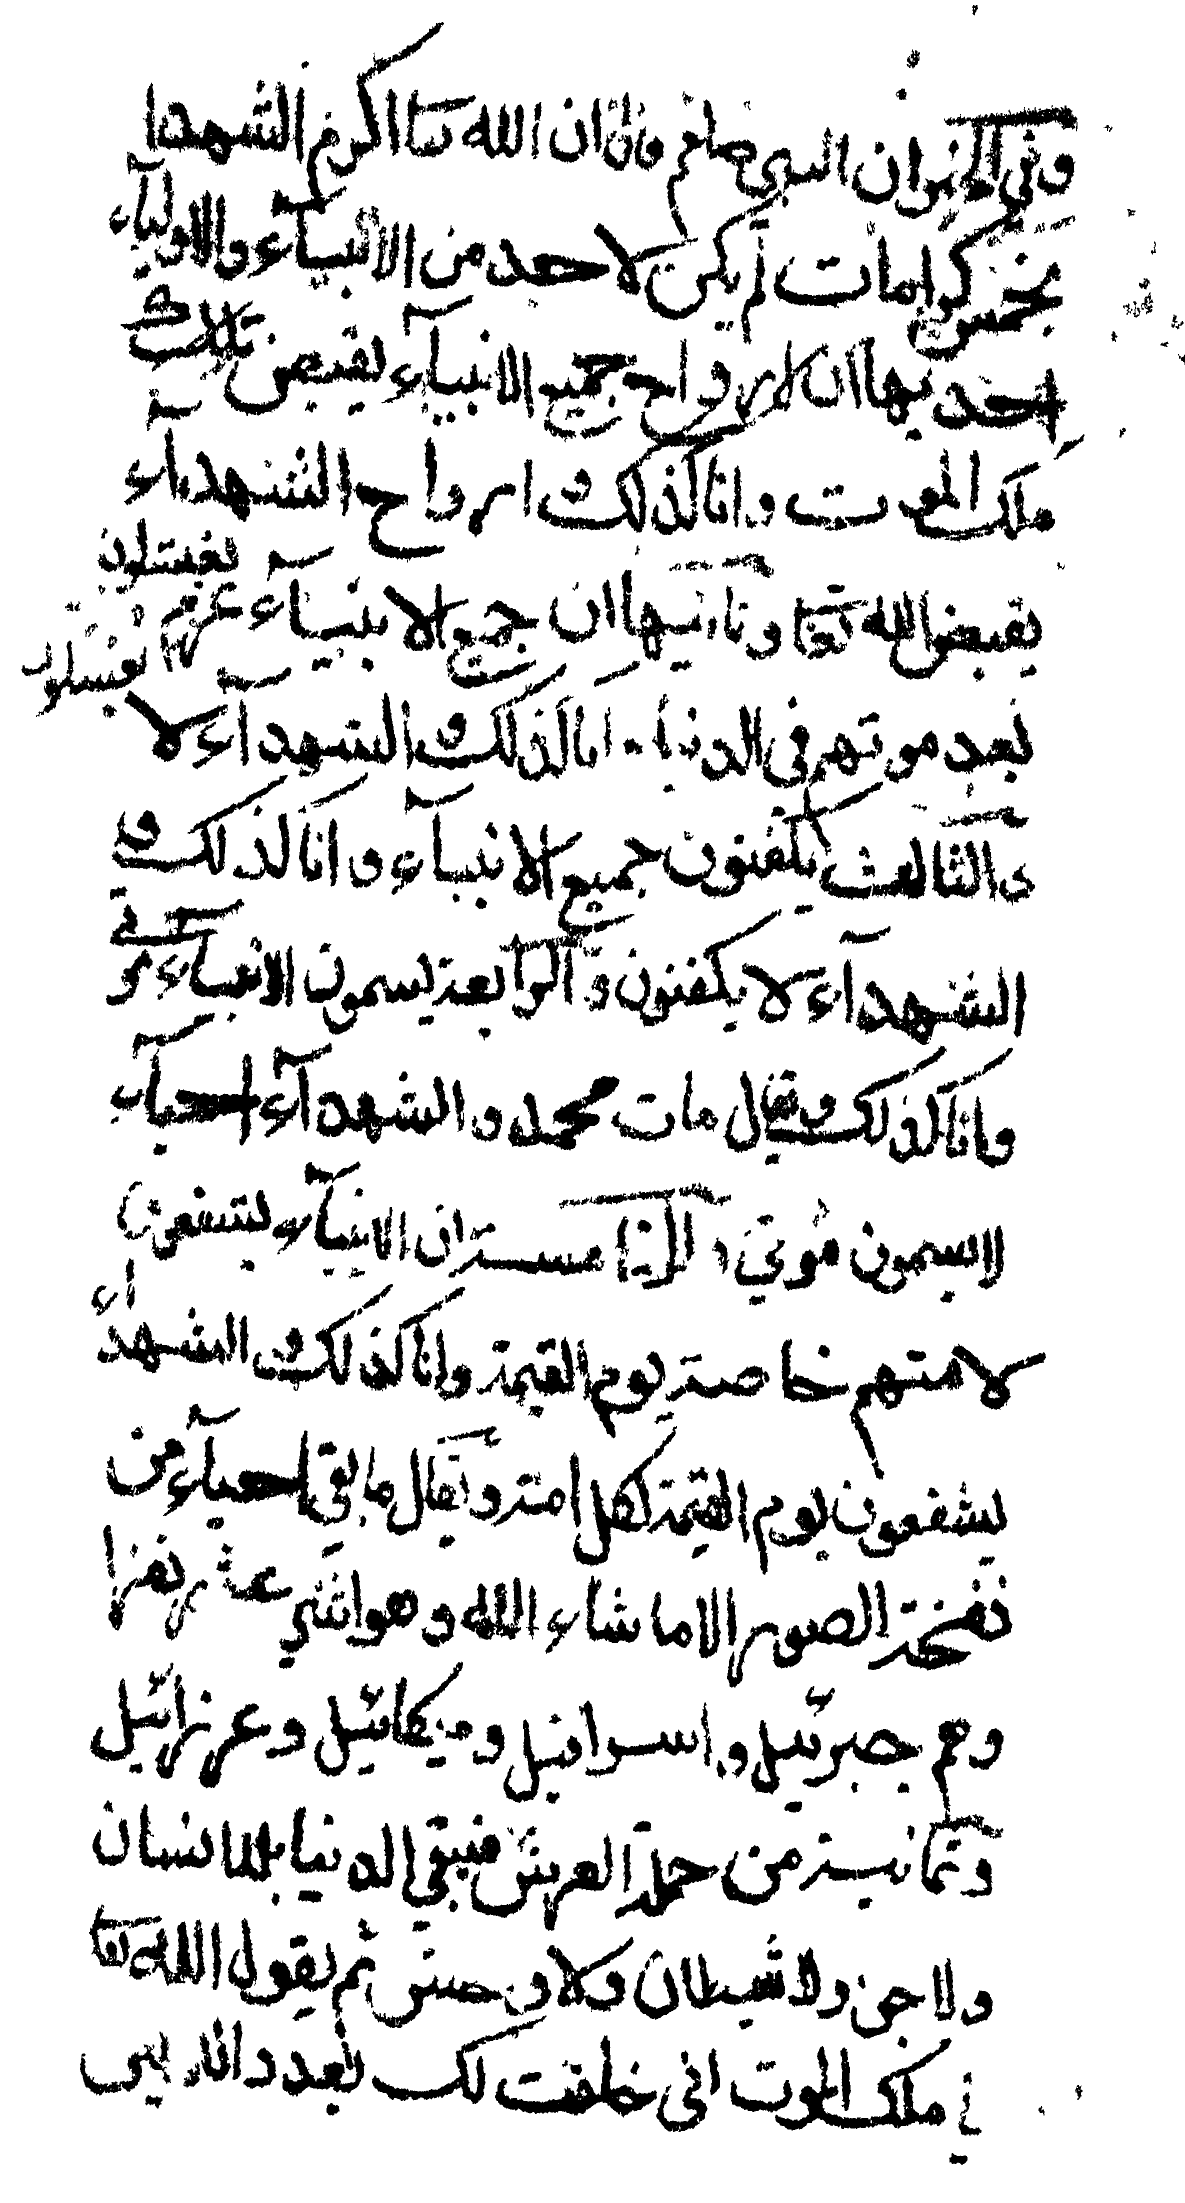 وفي الخبر ان النبي صلعم قال ان الله تعا اكرم الشهدا
بخمس كرامات لم يكن لاحد من الانبيآء والاوليآء
احديها ان ارواح جميع الانبيآء يقبض تلك
ملك الموت وانا كذلك وارواح الشهدآء
يقبض الله تعا وثانيها ان جميع الانبيآء غرهم يغسلون
يغسلون
بعد موتهم في الدنيا وانا كذلك والشهدآء لا
والثالث يكفنون جميع الانبيآء وانا كذلك و
الشهدآء لا يكفنون والرابعة يسمون الانبيآء موتى
وانا كذلك ويقال مات محمد والشهدآء احيآء
لا يسمون موتى والخامسة ان الانبيآء يشفعون
لامتهم خاصة يوم القيمة وانا كذلك والشهدآء
يشفعون يوم القيمة لكل امة ويقال ما بقي احيآء من
نفخة الصور الا ما شاء الله وهو اثني عشر نفرا
وهم جبرئيل واسرافيل وميكائيل وعزرائيل
وثمانية من حملة العرش فيبقي الدنيا بلا انسان
ولا جن ولا شيطان ولا وحش ثم يقول الله تعا
يا ملك الموت اني خلقت لك بعدد الاولين